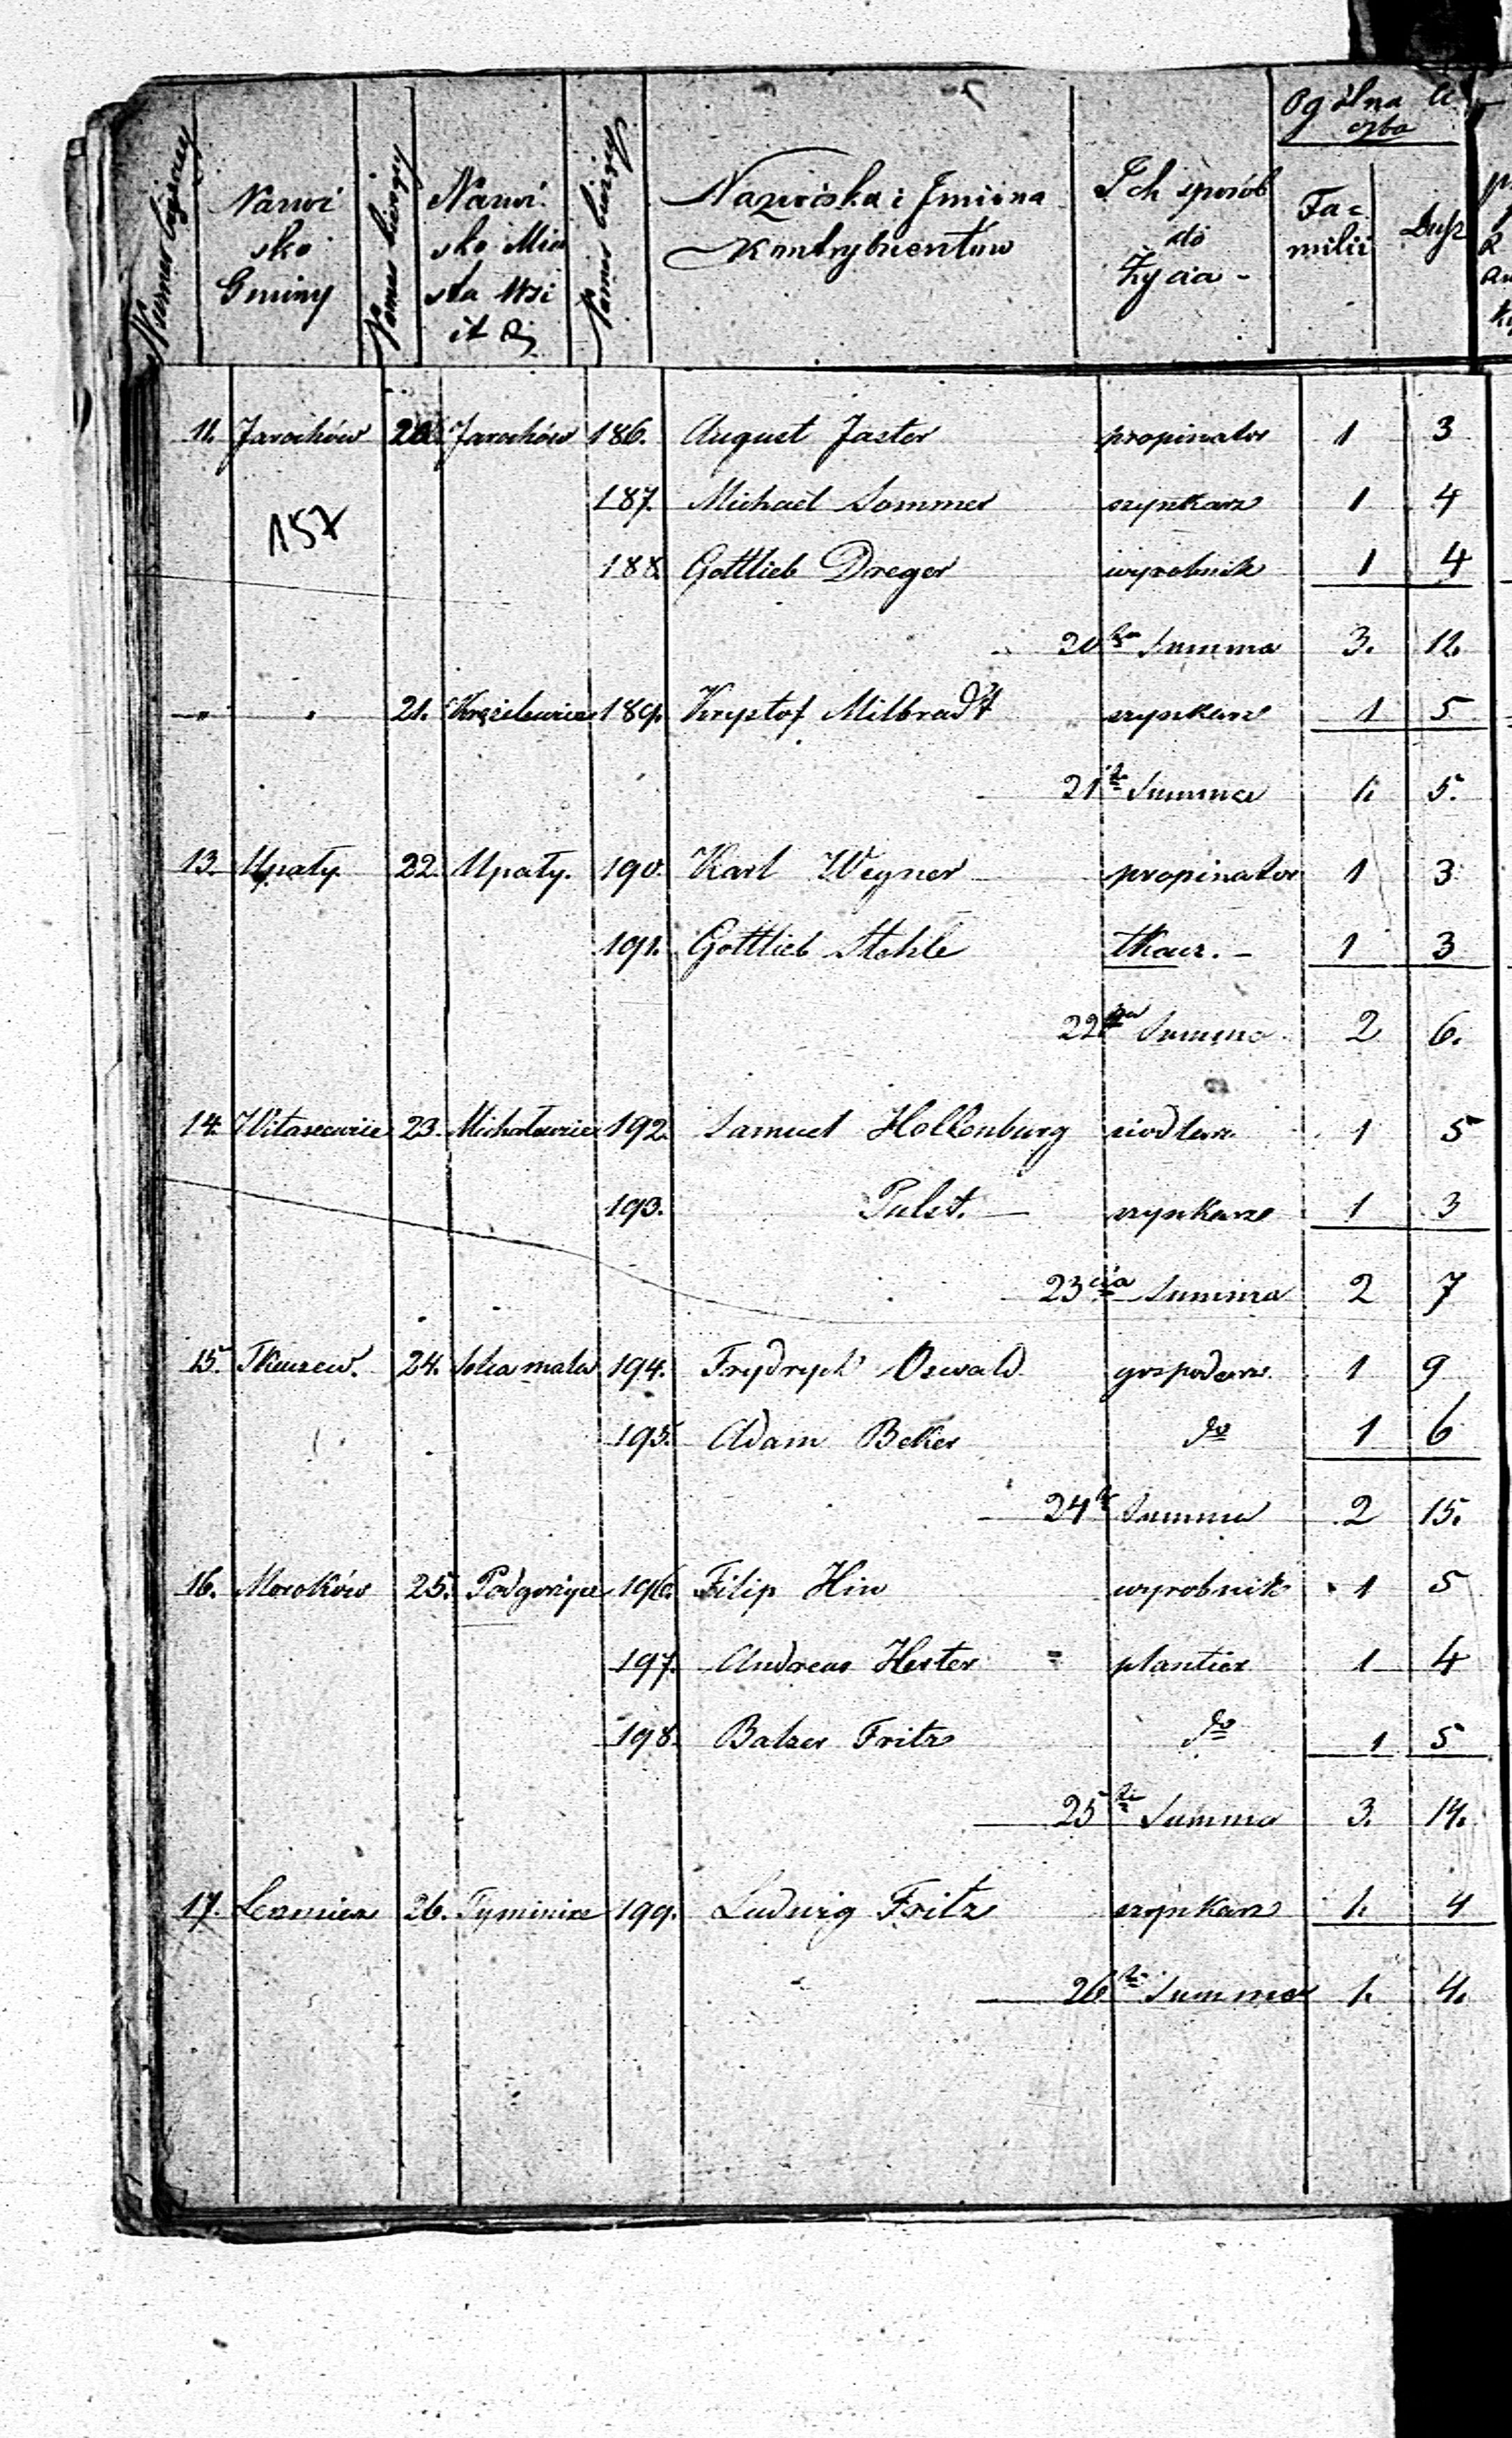 Numer bieżący
Nazwi
sko
Gminy
Numer bieżący
Nazwi
sko Mia
sta Wsi
it d
Numer bieżący
Nazwiska i Jmiona
Kontrybuentów
Ich sposób
do
Życia -
Ogólna li
czba
Fa=
milii
Dusz
11. Jarochów 20. Jarochów 186. August Jaster propinator 1 3
187. Michael Sommer szynkarz 1 4
157
188. Gottlieb Dreger wyrobnik 1 4
20 Summa 3. 12.
" " 21. 189. Krystof Milbradt szynkarz 1 5
21 Summa 1. 5.
13. Upały 22. Upały. 190. Karl Wegner propinator 1 3
191. Gottlieb Stehle tkacz. - 1 3
22 Summa 2 6.
14. 23. 192. Samuel Hollenburg siodlarz 1 5
193. Pulst. szynkarz 1 3
23cia Summa 2 7
15. Tkaczew. 24. Solca mała 194. Frydrych Oswald gospodarz 1 9
195. Adam Beker do 1 6
24 Summa 2 15.
16. 25. Podgorzyce 196. Filip Hin wyrobnik 1 5
197. Andreas Hester plantier 1 4
198. Balzer Fritz do 1 5
25 Summa 3. 14.
17. 26. 199. Ludwig Fritz szynkarz 1. 4
26 Summa 1. 4.